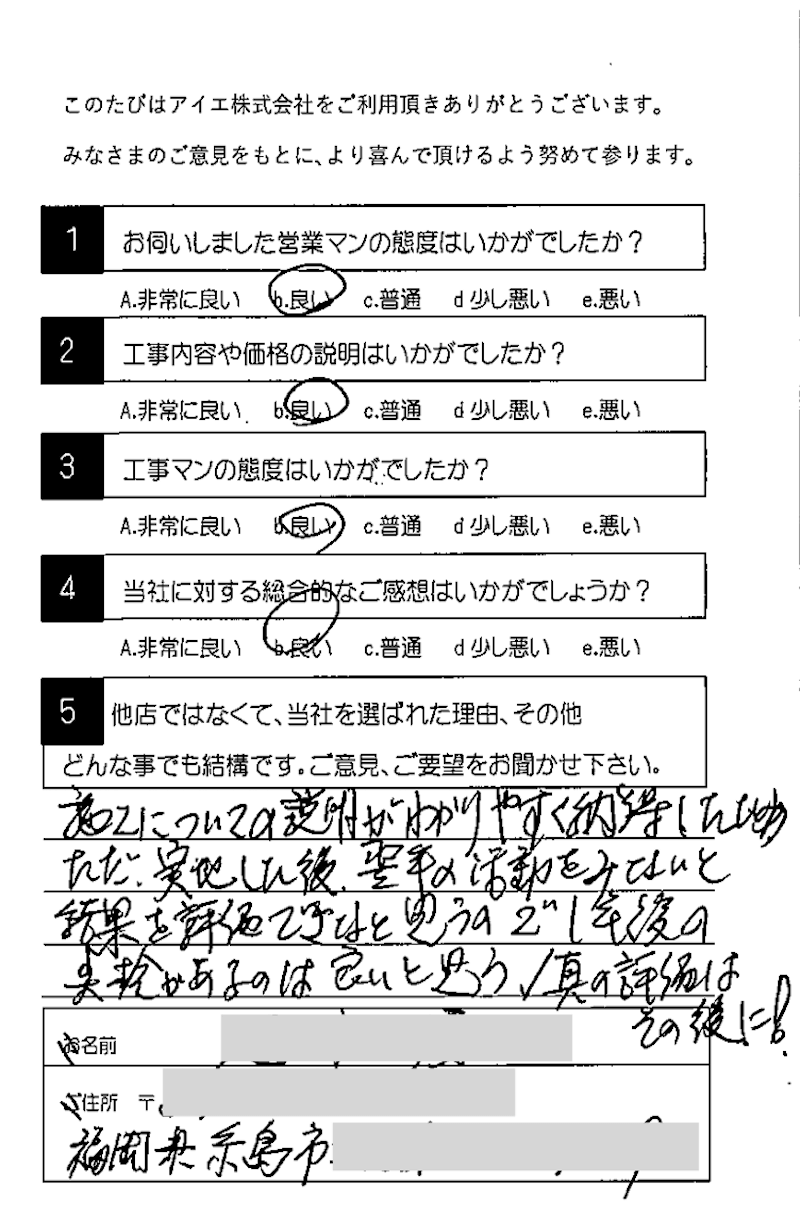 このたびはアイエ株式会社をご利用頂きありがとうございます。
みなさまのご意見をもとに、より喜んで頂けるよう努めて参ります。
1 お伺いしました営業マンの態度はいかがでしたか？
A.非常に良い b.良い c.普通 d 少し悪い e.悪い
2 工事内容や価格の説明はいかがでしたか？
A.非常に良い b.良い c.普通 d 少し悪い e.悪い
3 工事マンの態度はいかがでしたか？
A.非常に良い b.良い c.普通 d 少し悪い e.悪い
4 当社に対する総合的なご感想はいかがでしょうか？
A.非常に良い b.良い c.普通 d 少し悪い e.悪い
5 他店ではなくて、当社を選ばれた理由、その他
どんな事でも結構です。ご意見、ご要望をお聞かせ下さい。
施工についての説明がわかりやすく納得したため
ただ、実施した後、翌年の活動をみないと
結果を評価できないと思うので 1年後の
があるのは良いと思う 真の評価は
その後に!
お名前
ご住所 〒
福岡県糸島市